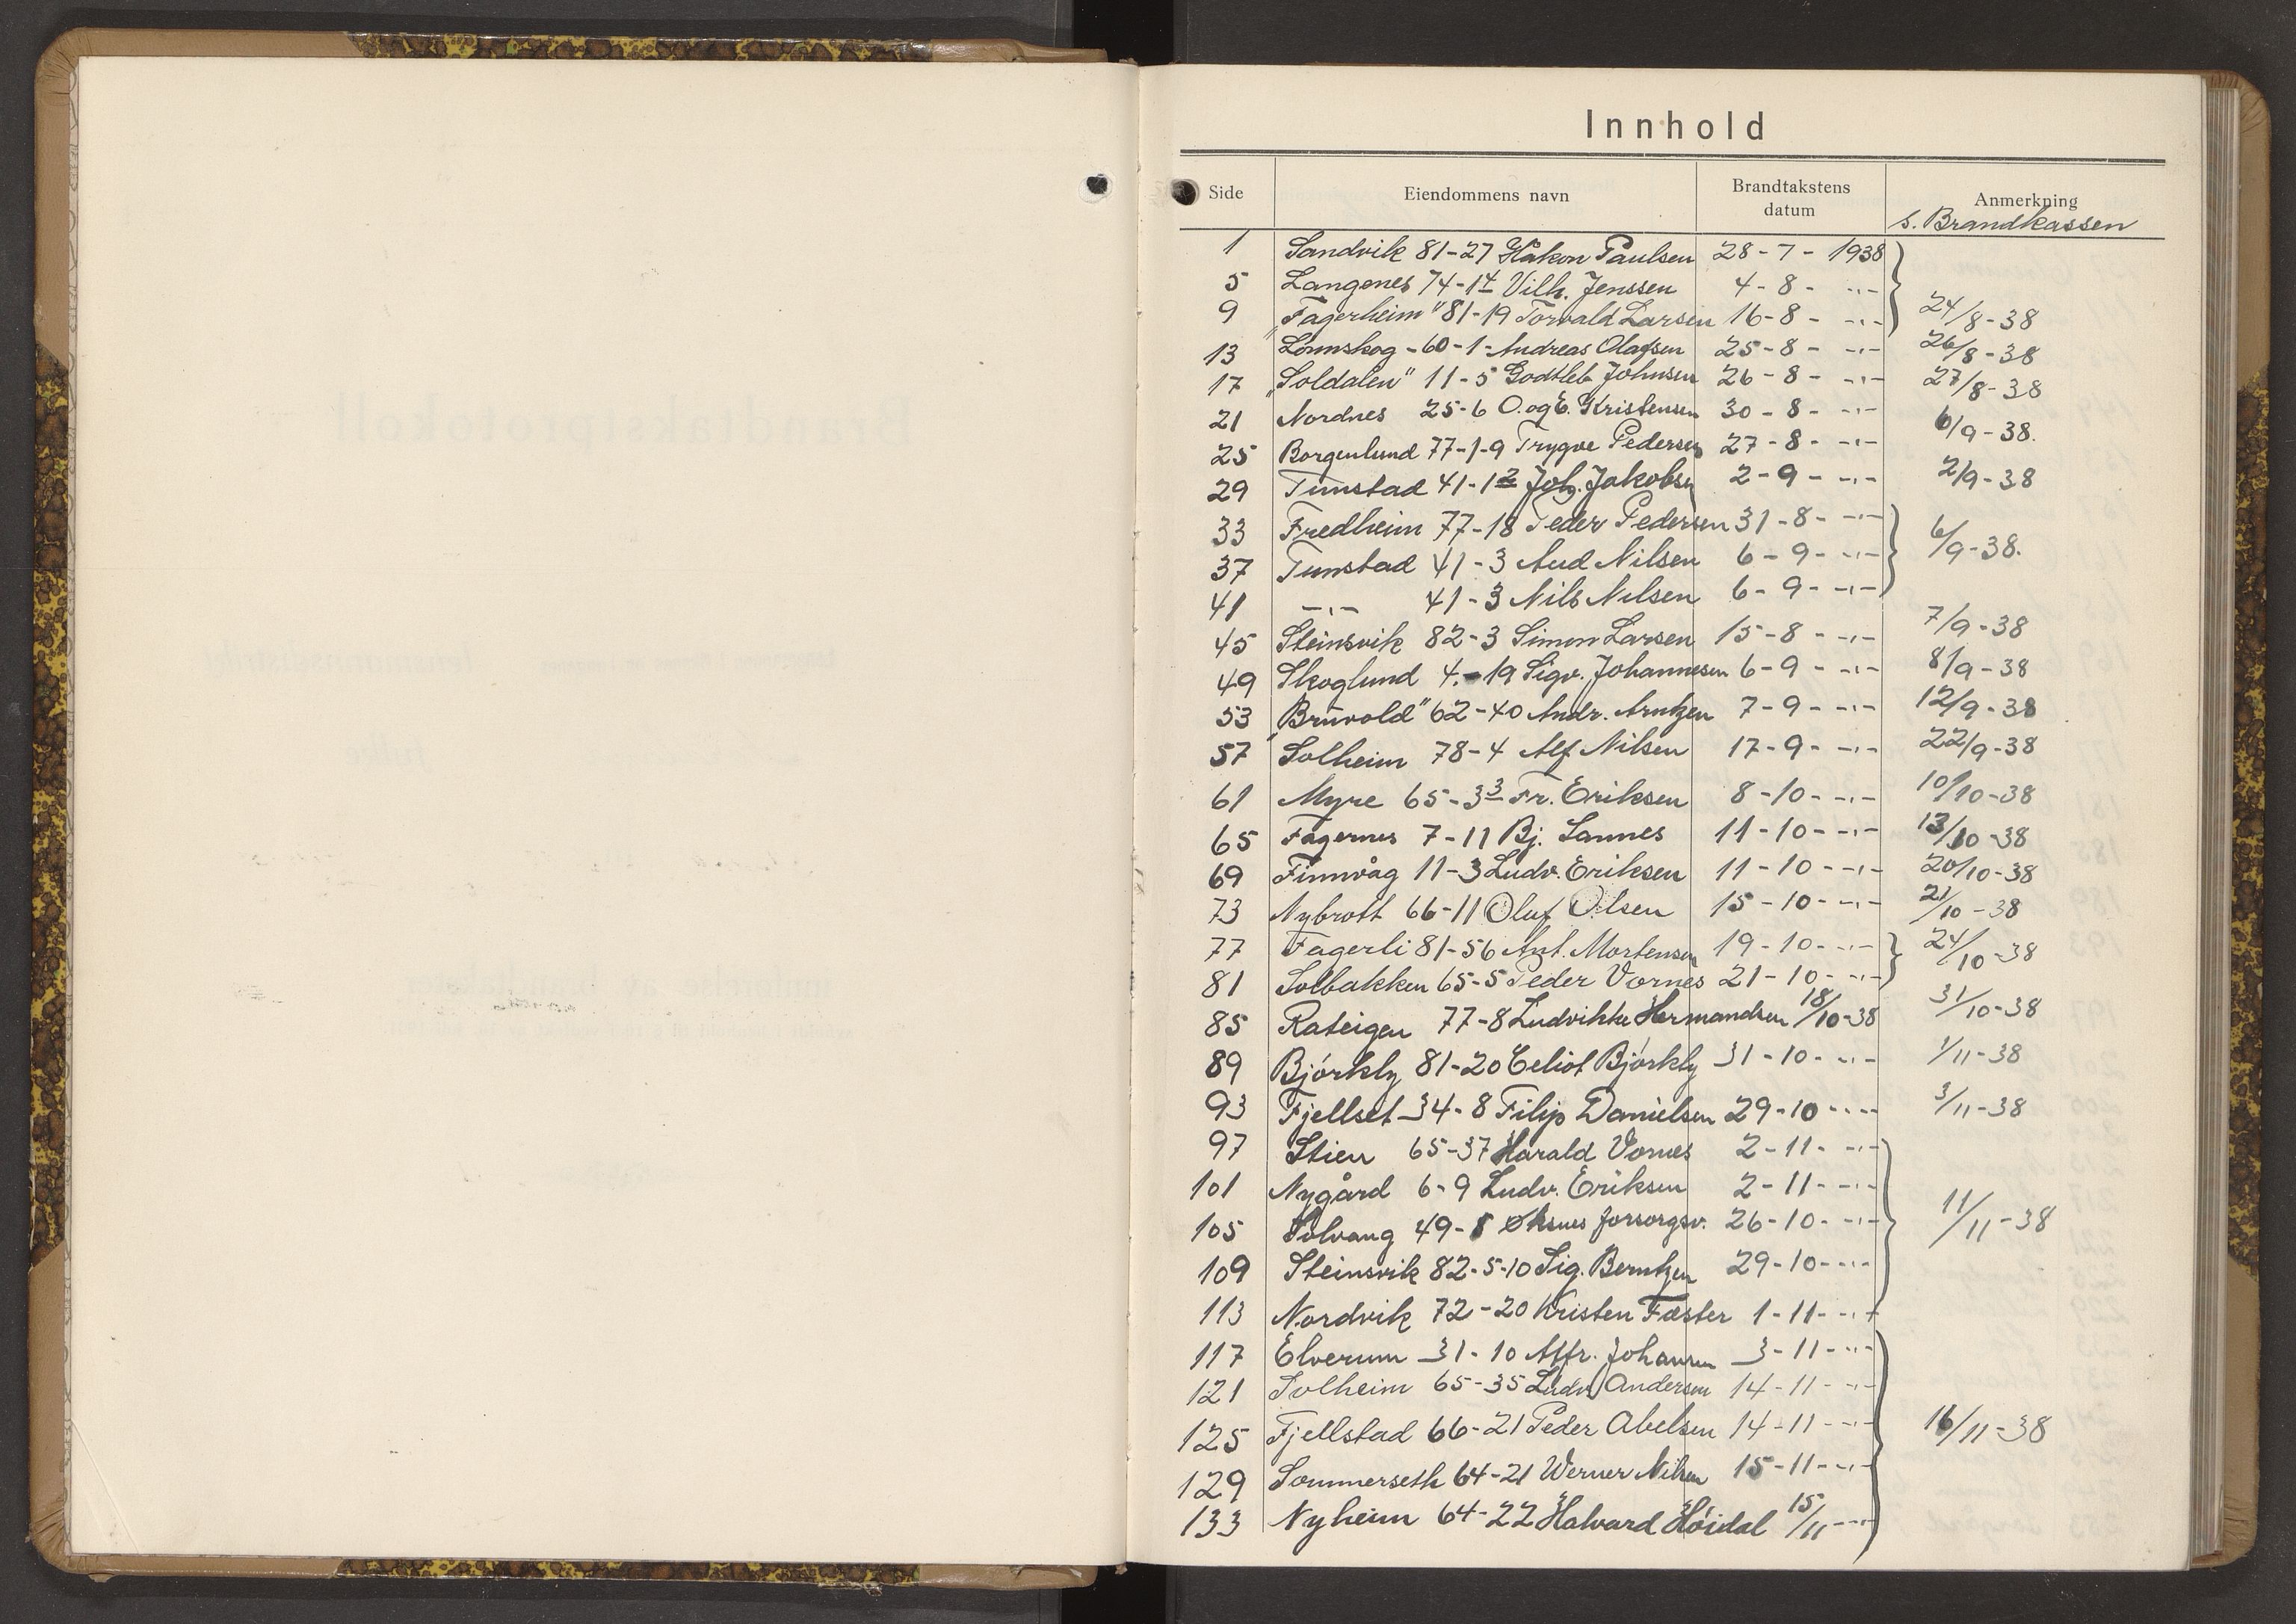 Innhold
Side Eiendommens navn Brandtakstens datum Anmerkning
s. Brandkassen
1 Sandvik 81-27 Håkon Paulsen 28-7-1938
5 Langenes 74-14 Vilh. Jenssen 4-8- -"-
9 "Fagerheim" 81-19 Torvald Larsen 16-8- -"- 24/8-38
13 Lønnskog -60-1- Andreas Olafsen 25-8- -"- 26/8-38
17 "Soldalen" 11-5 Godtleb Johnsen 26-8- -"- 27/8-38
21 Nordnes 25-6 O. og E. Kristensen 30-8- -"- 6/9-38.
25 Borgenlund 77-1-9 Trygve Pedersen 27-8- -"-
29 Tunstad 41-12 Joh. Jakobsen 2-9- -"- 2/9-38
33 Fredheim 77-18 Peder Pedersen 31-8- -"-
37 Tunstad 41-3 Aud Nilsen 6-9- -"- 6/9-38.
41 -"- 41-3 Nils Nilsen 6-9- -"-
45 Steinsvik 82-3 Simon Larsen 15-8- -"- 7/9-38
49 Skoglund 4.-19 Sigv. Johannesen 6-9- -"- 8/9-38
53 "Bruvold" 62-40 Andr. Arntzen 7-9- -"- 12/9-38
57 Solheim 78-4 Alf Nilsen 17-9- -"- 22/9-38
61 Myre 65-33 Fr. Eriksen 8-10- -"- 10/10-38
65 Fagernes 7-11 Bj. Sannes 11-10- -"- 13/10-38
69 Finnvåg 11-3 Ludv. Eriksen 11-10- -"- 20/10-38
73 Nybrott 66-11 Oluf Olsen 15-10- -"- 21/10-38
77 Fagerli 81-56 Ant. Mortensen 19-10- -"- 24/10-38
81 Solbakken 65-5 Peder Vornes 21-10- -"-
85 Rateigen 77-8 Ludvikke Hermandsen 18/10-38 31/10-38
89 Bjórkly 81-20 Celiot Bjórkly 31-10- -"- 1/11-38
93 Fjellset 34-8 Filip Danielsen 29-10- -"- 3/11-38
97 Stien 65-37 Harald Vornes 2-11- -"-
101 Nygård 6-9 Ludv. Eriksen 2-11- -"-
105 Solvang 49-8 Øksnes forsorgsv. 26-10- -"- 11/11-38
109 Steinsvik 82-5-10 Sig. Berntzen 29-10- -"-
113 Nordvik 72-20 Kristen Fæster 1-11- -"-
117 Elverum 31-10 Alfr. Johansen 3-11- -"-
121 Solheim 65-35 Ludv. Andersen 14-11- -"-
125 Fjellstad 66-21 Peder Abelsen 14-11- -"- 16/11-38
129 Sommerseth 64-21 Werner Nilsen 15-11- -"-
133 Nyheim 64-22 Halvard Hóidal 15/11 -"-